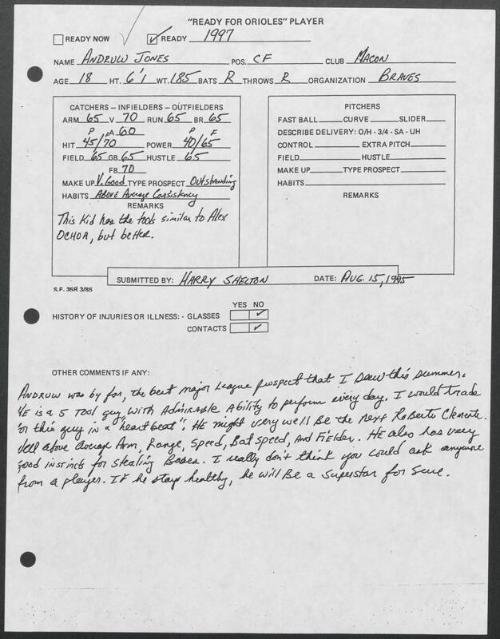 "READY FOR ORIOLES" PLAYER
READY NOW ✓ READY 1997
NAME ANDRUW JONES POS. CF CLUB MACON
AGE 18 HT. 6'1 WT. 185 BATS R THROWS R ORGANIZATION BRAVES
CATCHERS — INFIELDERS — OUTFIELDERS
ARM 65 V 70 RUN 65 BR 65
P PA 60 P F
HIT 45/70 POWER 40/65
FIELD 65 GB 65 HUSTLE 65
FB 70
MAKE UP V. Good TYPE PROSPECT Outstanding
HABITS Above Average Consistency
REMARKS
This Kid has the tools similar to Alex
OCHOA, but better.
PITCHERS
FAST BALL CURVE SLIDER
DESCRIBE DELIVERY: O/H - 3/4 - SA - UH
CONTROL EXTRA PITCH
FIELD HUSTLE
MAKE UP TYPE PROSPECT
HABITS
REMARKS
SUBMITTED BY: HARRY SHELTON DATE: AUG 15, 1995
S.F. 3SR 3/85
YES NO
HISTORY OF INJURIES OR ILLNESS: - GLASSES ✓
CONTACTS ✓
OTHER COMMENTS IF ANY:
ANDRUW was by far, the best major league prospect that I saw this summer.
HE is a 5 Tool guy with Admirable Ability to perform every day. I would trade
for this guy in a "heart beat". He might very well be the next Roberto Clemente.
Well above average Arm, Range, Speed, Bat speed, And Fielder. HE also has very
good instincts for stealing Bases. I really don't think you could ask anymore
from a player. If he stays healthy, he will Be a Superstar for Sure.